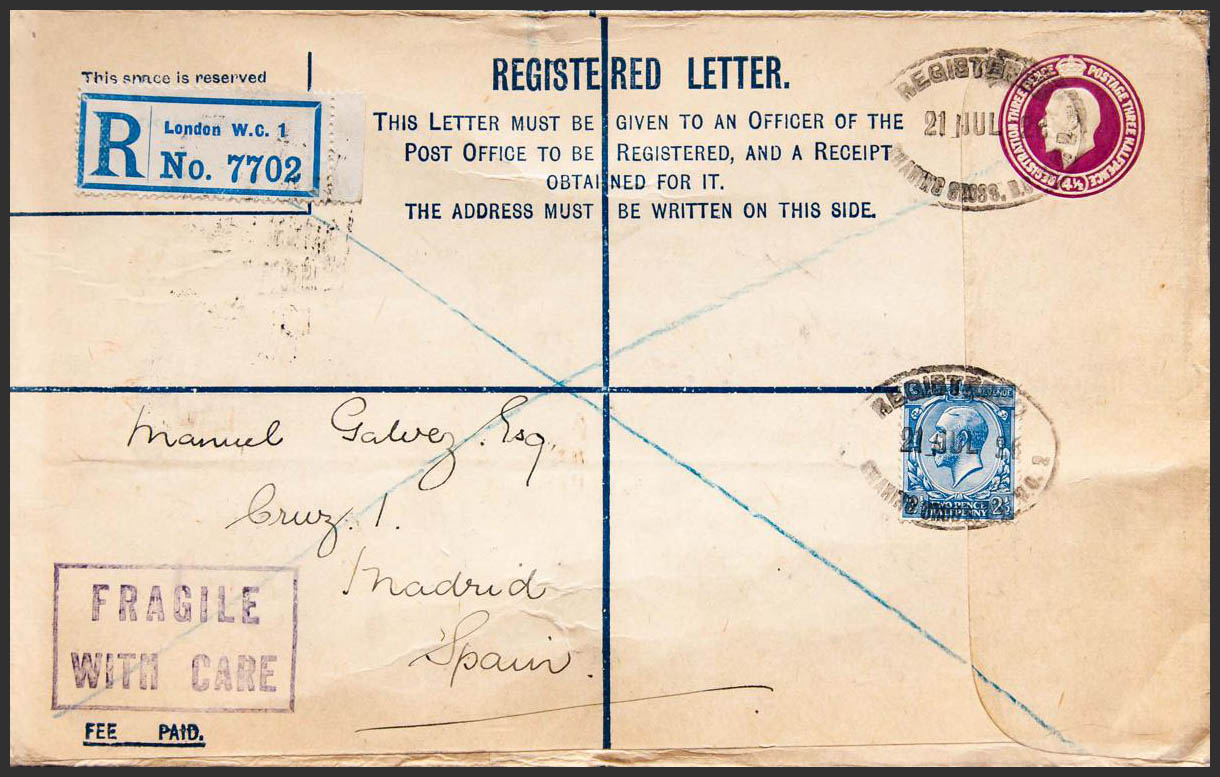 This space is reserved
R London W.C. 1
No. 7702
REGISTERED LETTER.
THIS LETTER MUST BE GIVEN TO AN OFFICER OF THE
POST OFFICE TO BE REGISTERED, AND A RECEIPT
OBTAINED FOR IT.
THE ADDRESS MUST BE WRITTEN ON THIS SIDE.
REGISTERED
21 JUL
CHARING CROSS.
REGISTRATION THREE PENCE POSTAGE THREE HALFPENCE
4½
REGISTERED
21 JUL
TWO PENCE
HALFPENNY
Manuel Galvez. Esq.
Cruz. 1.
Madrid
Spain.
FRAGILE
WITH CARE
FEE PAID.